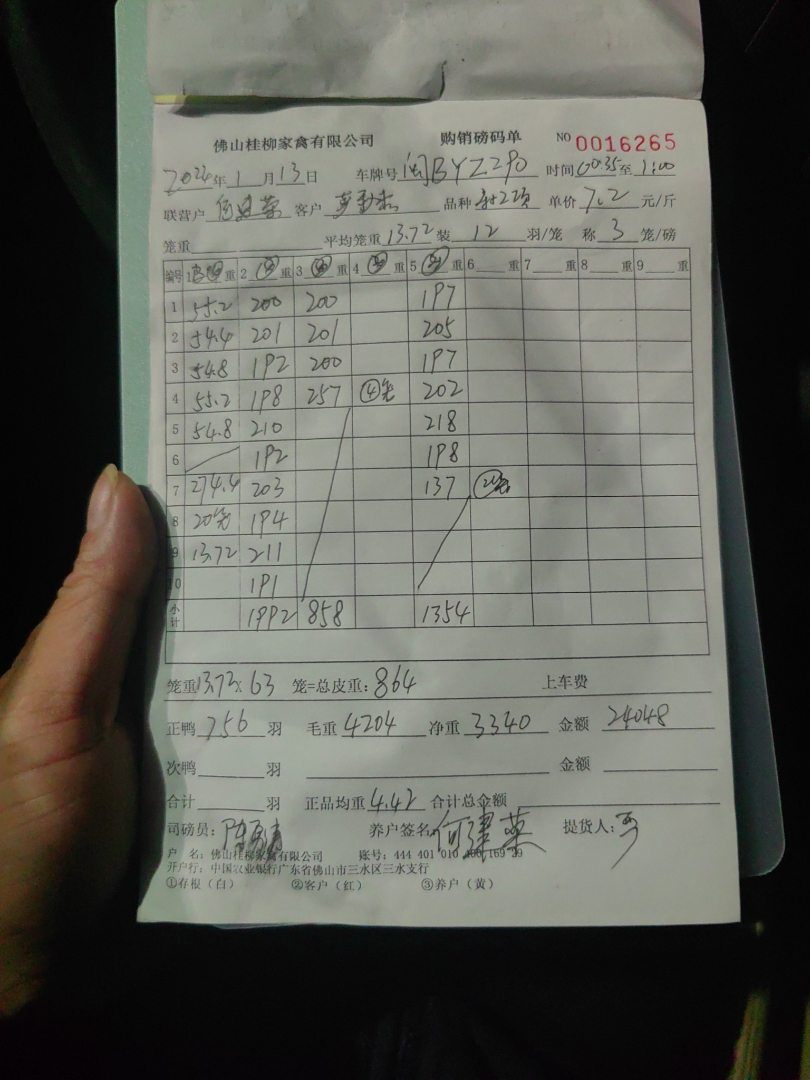 佛山桂柳家禽有限公司 购销磅码单 NO 0016265
2024年1月13日 车牌号 闽BYZ290 时间 00:35至1:00
联营户 何建荣 客户 品种 单价 7.2 元/斤
笼重 平均笼重 13.72 装 12 羽/笼 称 3 笼/磅
编号 1 重 2 重 3 重 4 重 5 重 6 重 7 重 8 重 9 重
1 55.2 200 200 197
2 54.4 201 201 205
3 54.8 192 200 197
4 55.2 198 257 ④笼 202
5 54.8 210 218
6 192 198
7 274.4 203 137
8 20笼 194
9 13.72 211
10 191
小计 1992 858 1354
笼重13.72× 63 笼=总皮重: 864 上车费
正鸭 756 羽 毛重 4204 净重 3340 金额 24048
次鸭 羽 金额
合计 羽 正品均重 4.42 合计总金额
司磅员: 养户签名 何建荣 提货人:
户 名: 佛山桂柳家禽有限公司 账号: 444 401 010 400 169 29
开户行: 中国农业银行广东省佛山市三水区三水支行
①存根（白） ②客户（红） ③养户（黄）